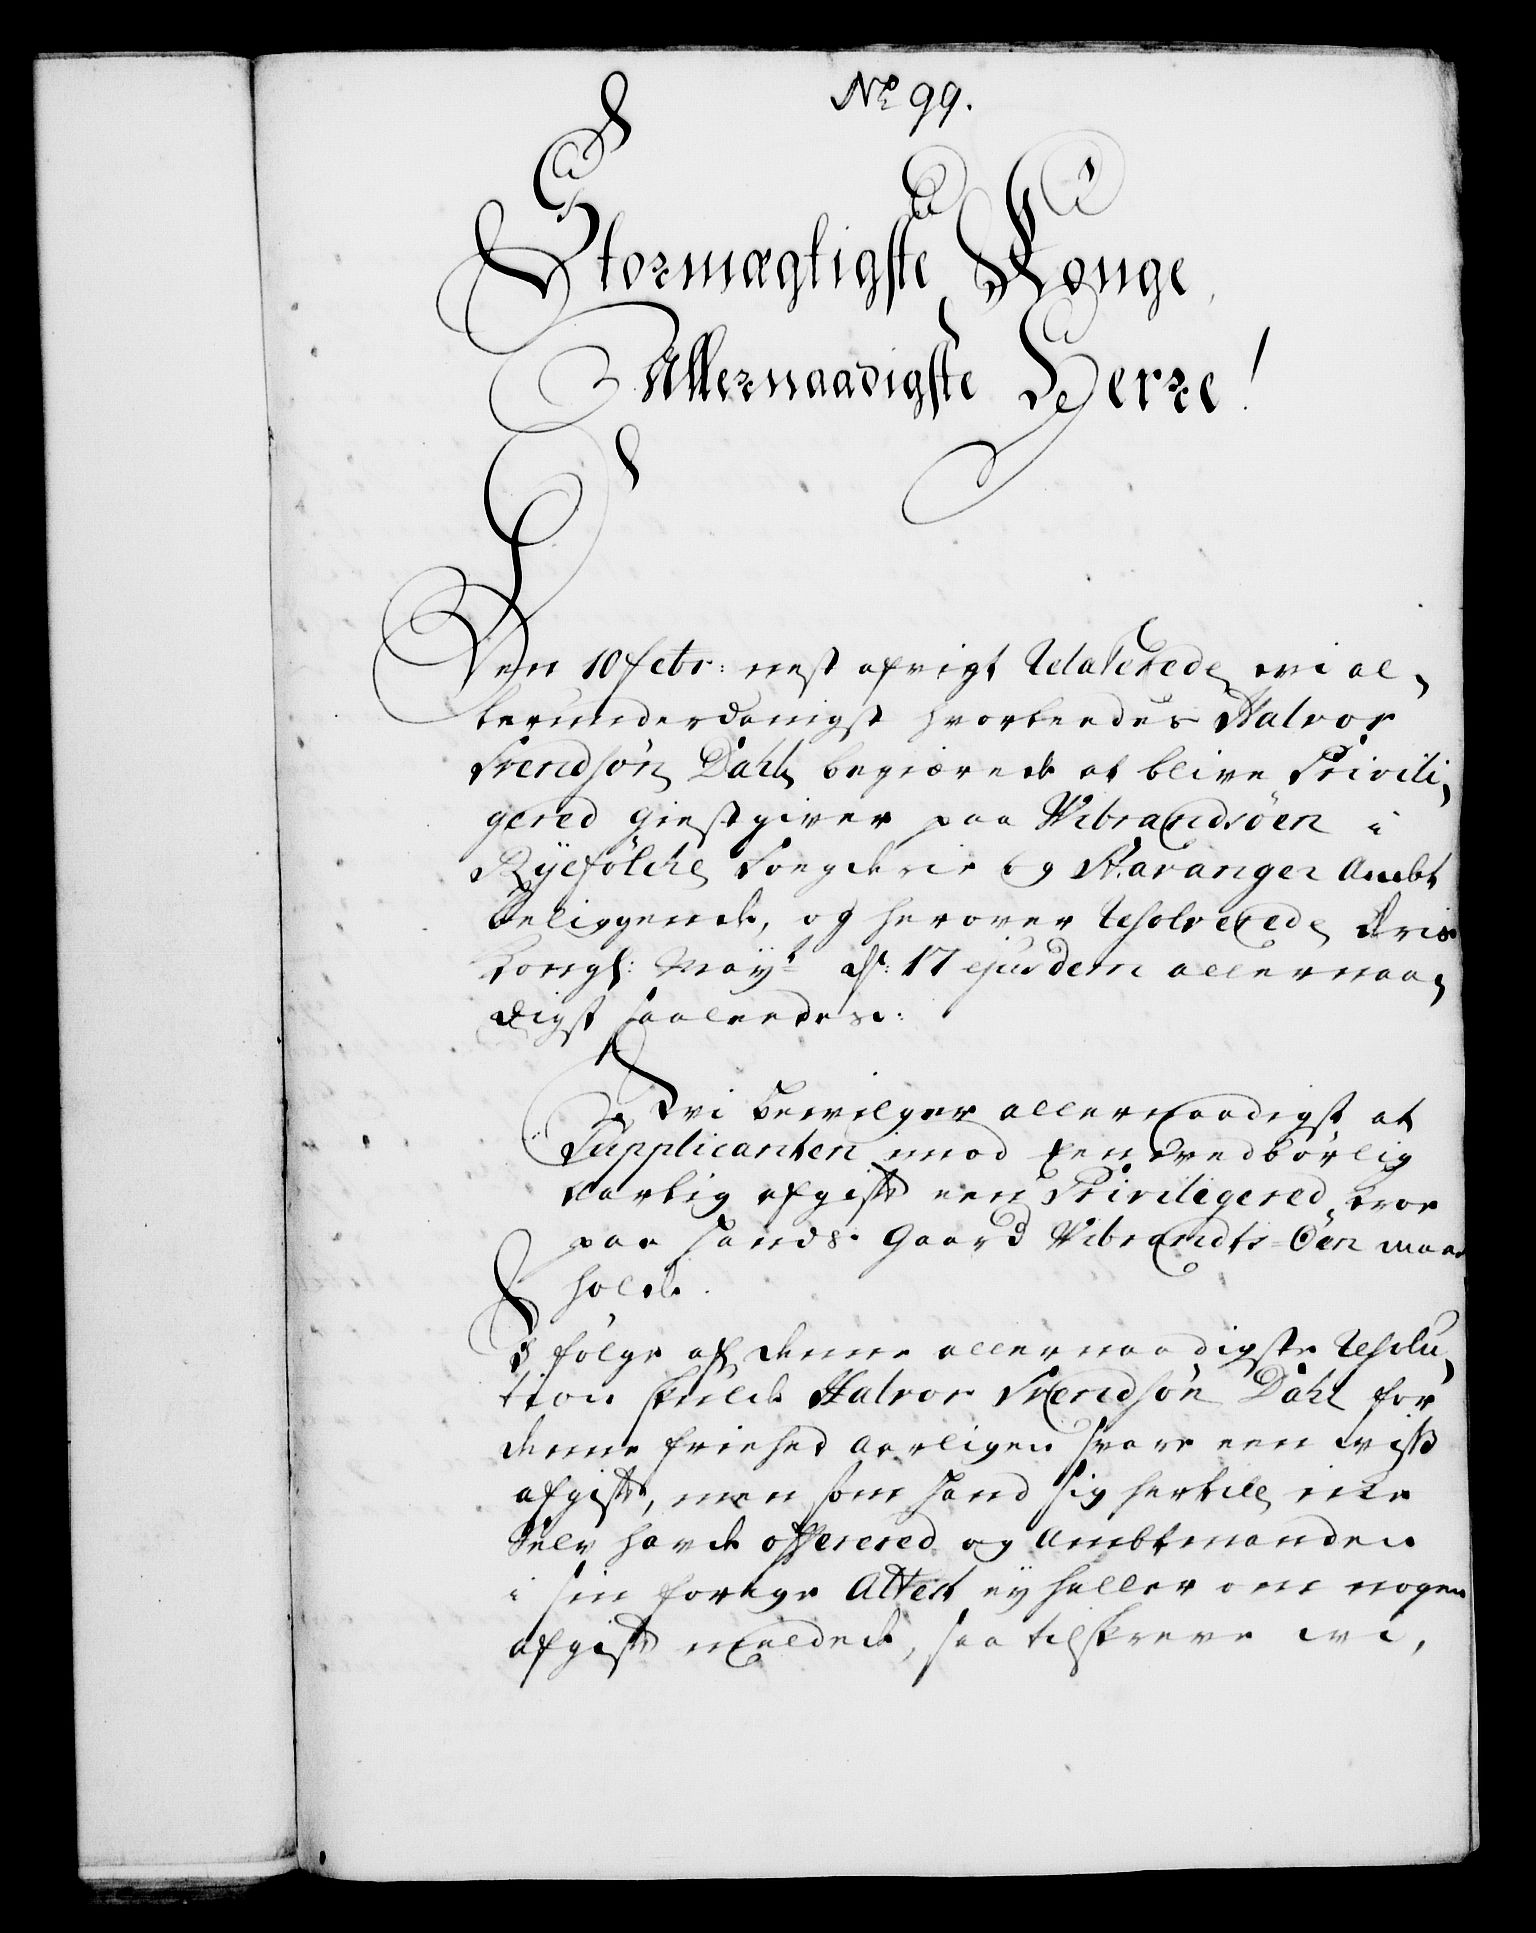 No 99.
Stormægtigste Konge
Allernaadigste Herre!
Den 10 febr: nest afvigt Relaterede wi al,
lerunderdanigst hvorleedes Halvor
Svendsøn Dahl begierede at blive Privili,
gered giestgiver paa Wibrandsöen i
Ryefölche Fogderie og Stavanger Ambt
beliggende, og herover Resolverede Deris
kongl: May: d: 17 ejusdem allernaa,
digst saaleedes:
Wi bevilger allernaadigst at
Supplicanten imod een vedbörlig
aarlig afgift een Privilegered kroe
paa hands Gaard Wibrandts-Öen maa
holde.
I fölge af denne allernaadigste Resolu,
tion skulde Halvor Svendsön Dahl for
denne friehed aarligen svare een wiss
afgift, men som hand sig hertill icke
Selv hafde offerered og Ambtmanden
i sin forrige Attest ey heller om nogen
afgift meldede, saa tilskreve wi,